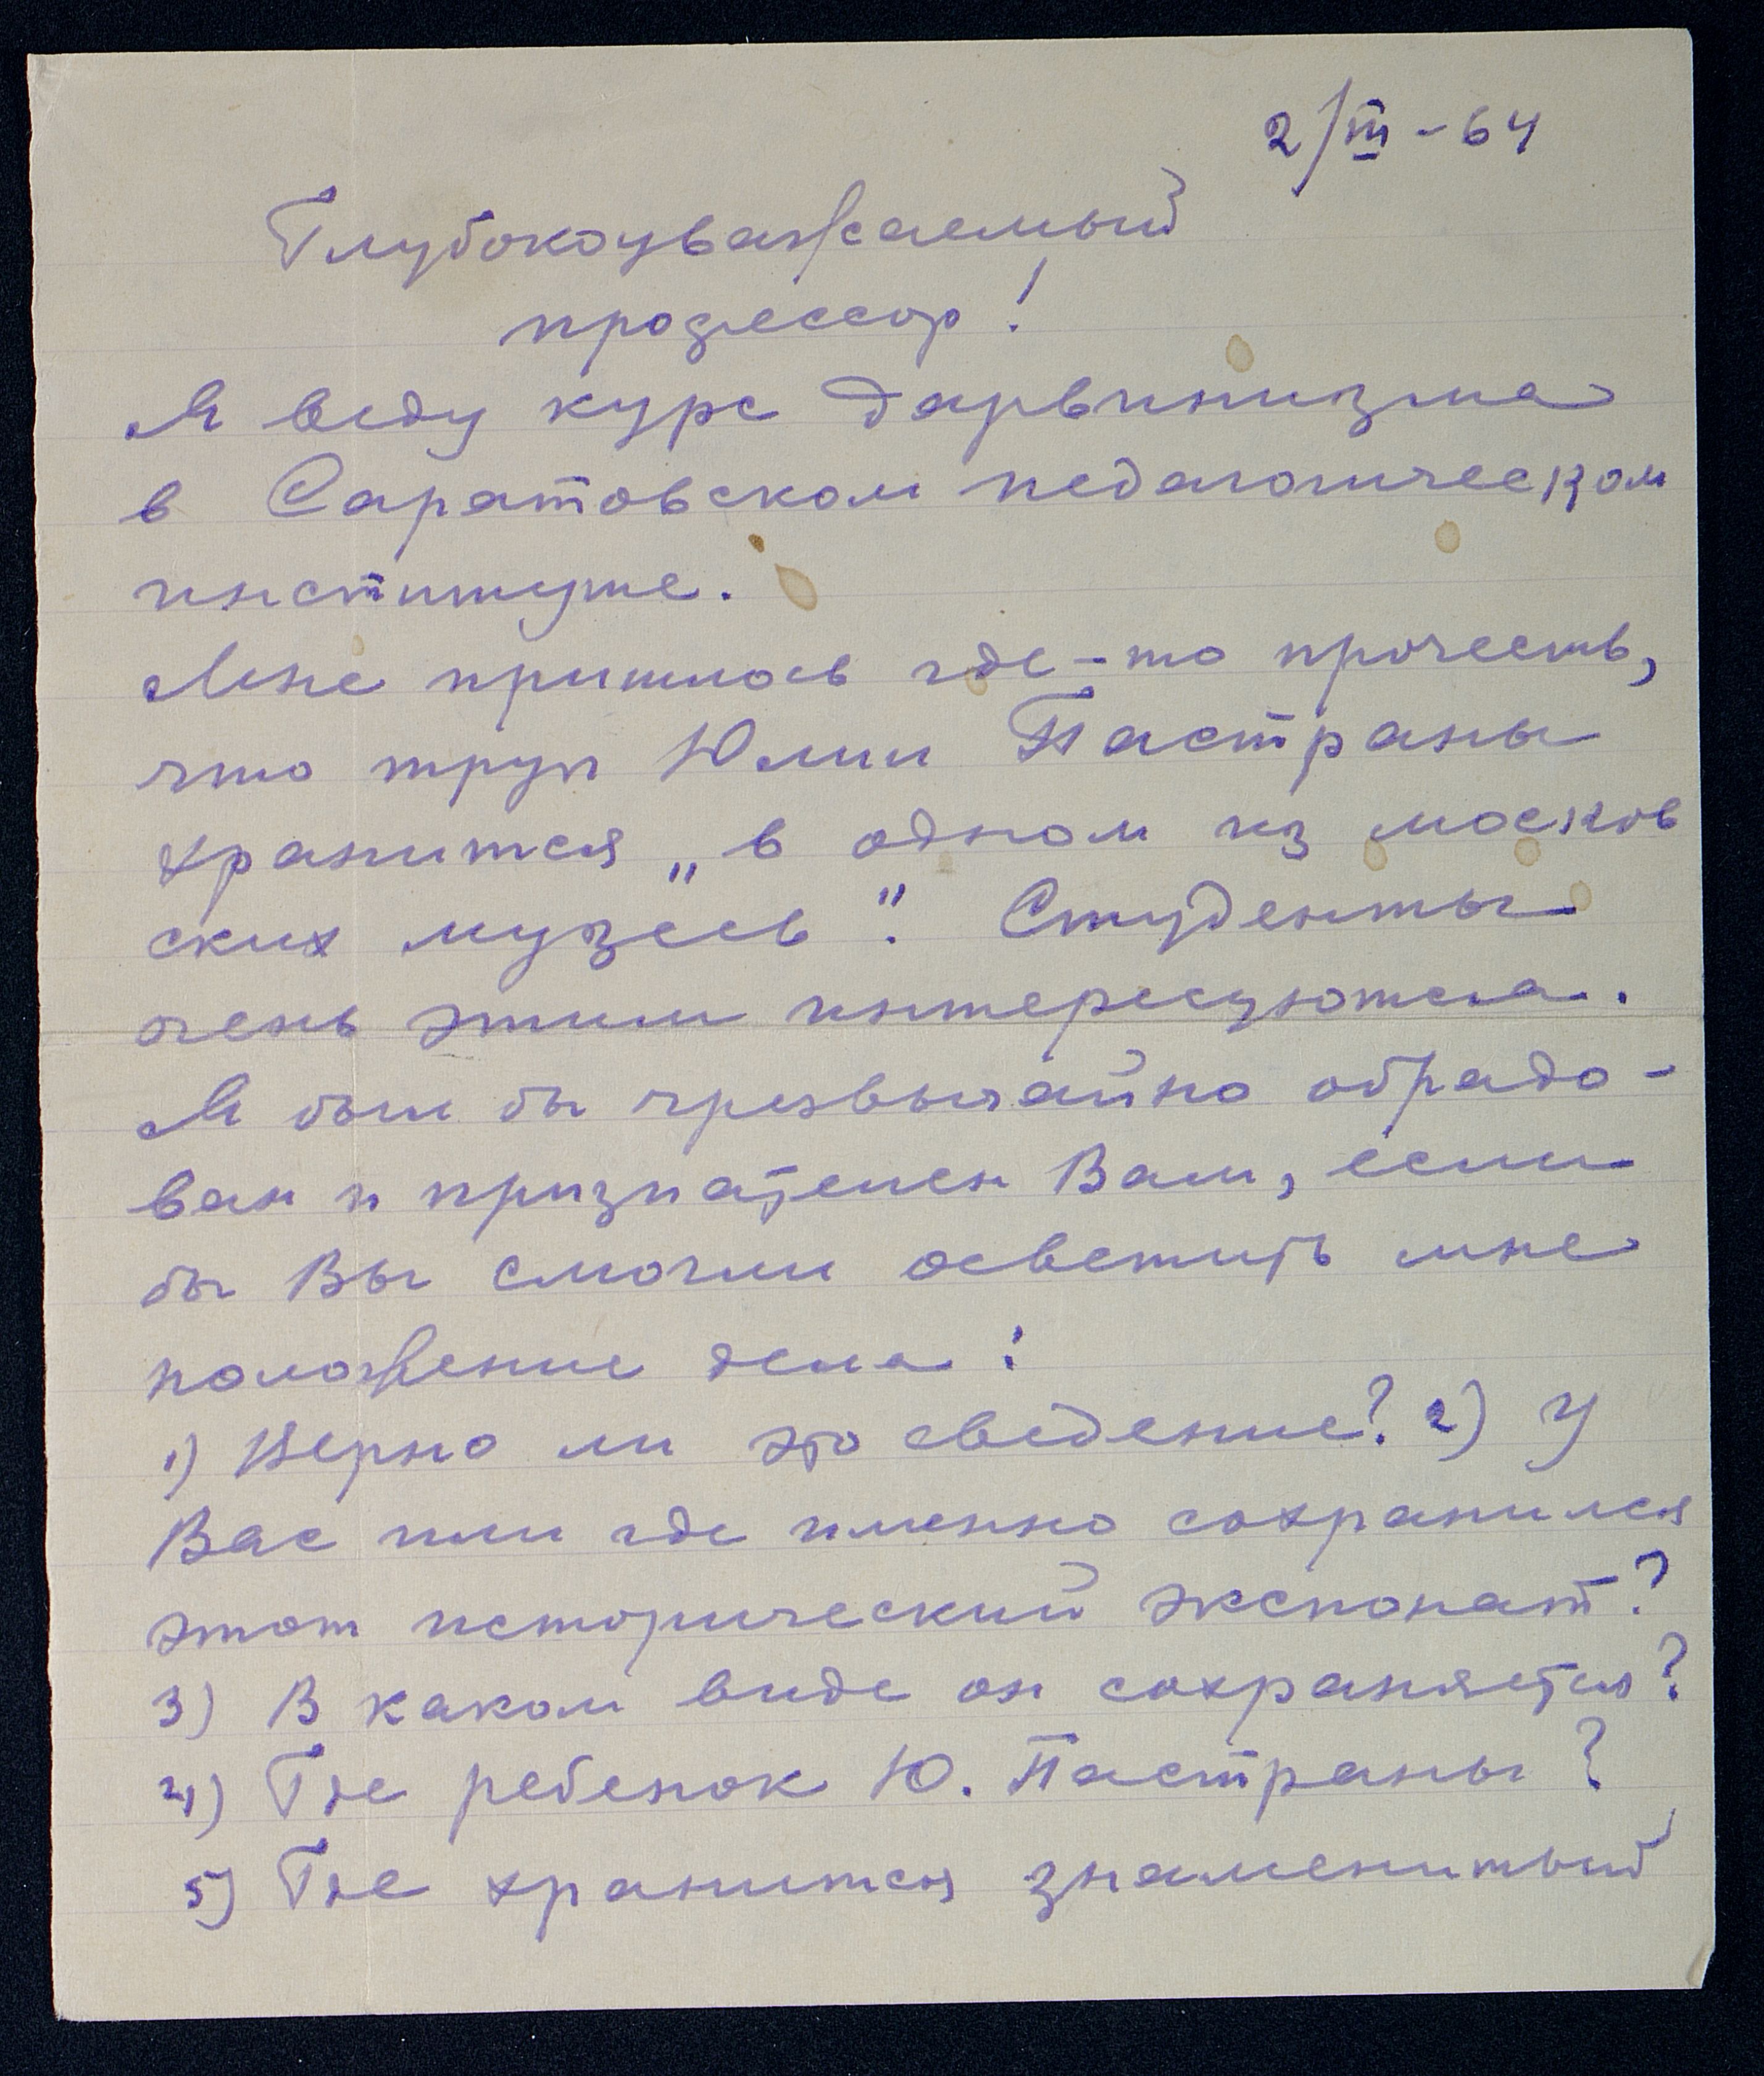 2/III - 64
Глубокоуважаемый
профессор!
Я веду курс дарвинизма
в Саратовском педагогическом
институте.
Мне пришлось где-то прочесть,
что труп Юлии Пастраны
хранится „в одном из москов
ских музеев". Студенты
очень этим интересуются.
Я был бы чрезвычайно обрадо-
ван и признателен Вам, если
бы Вы смогли осветить мне
положение дела:
1) Верно ли это сведение? 2) У
Вас или где именно сохранился
этот исторический экспонат?
3) В каком виде он сохраняется?
4) Где ребенок Ю. Пастраны?
5) Где хранится знаменитый